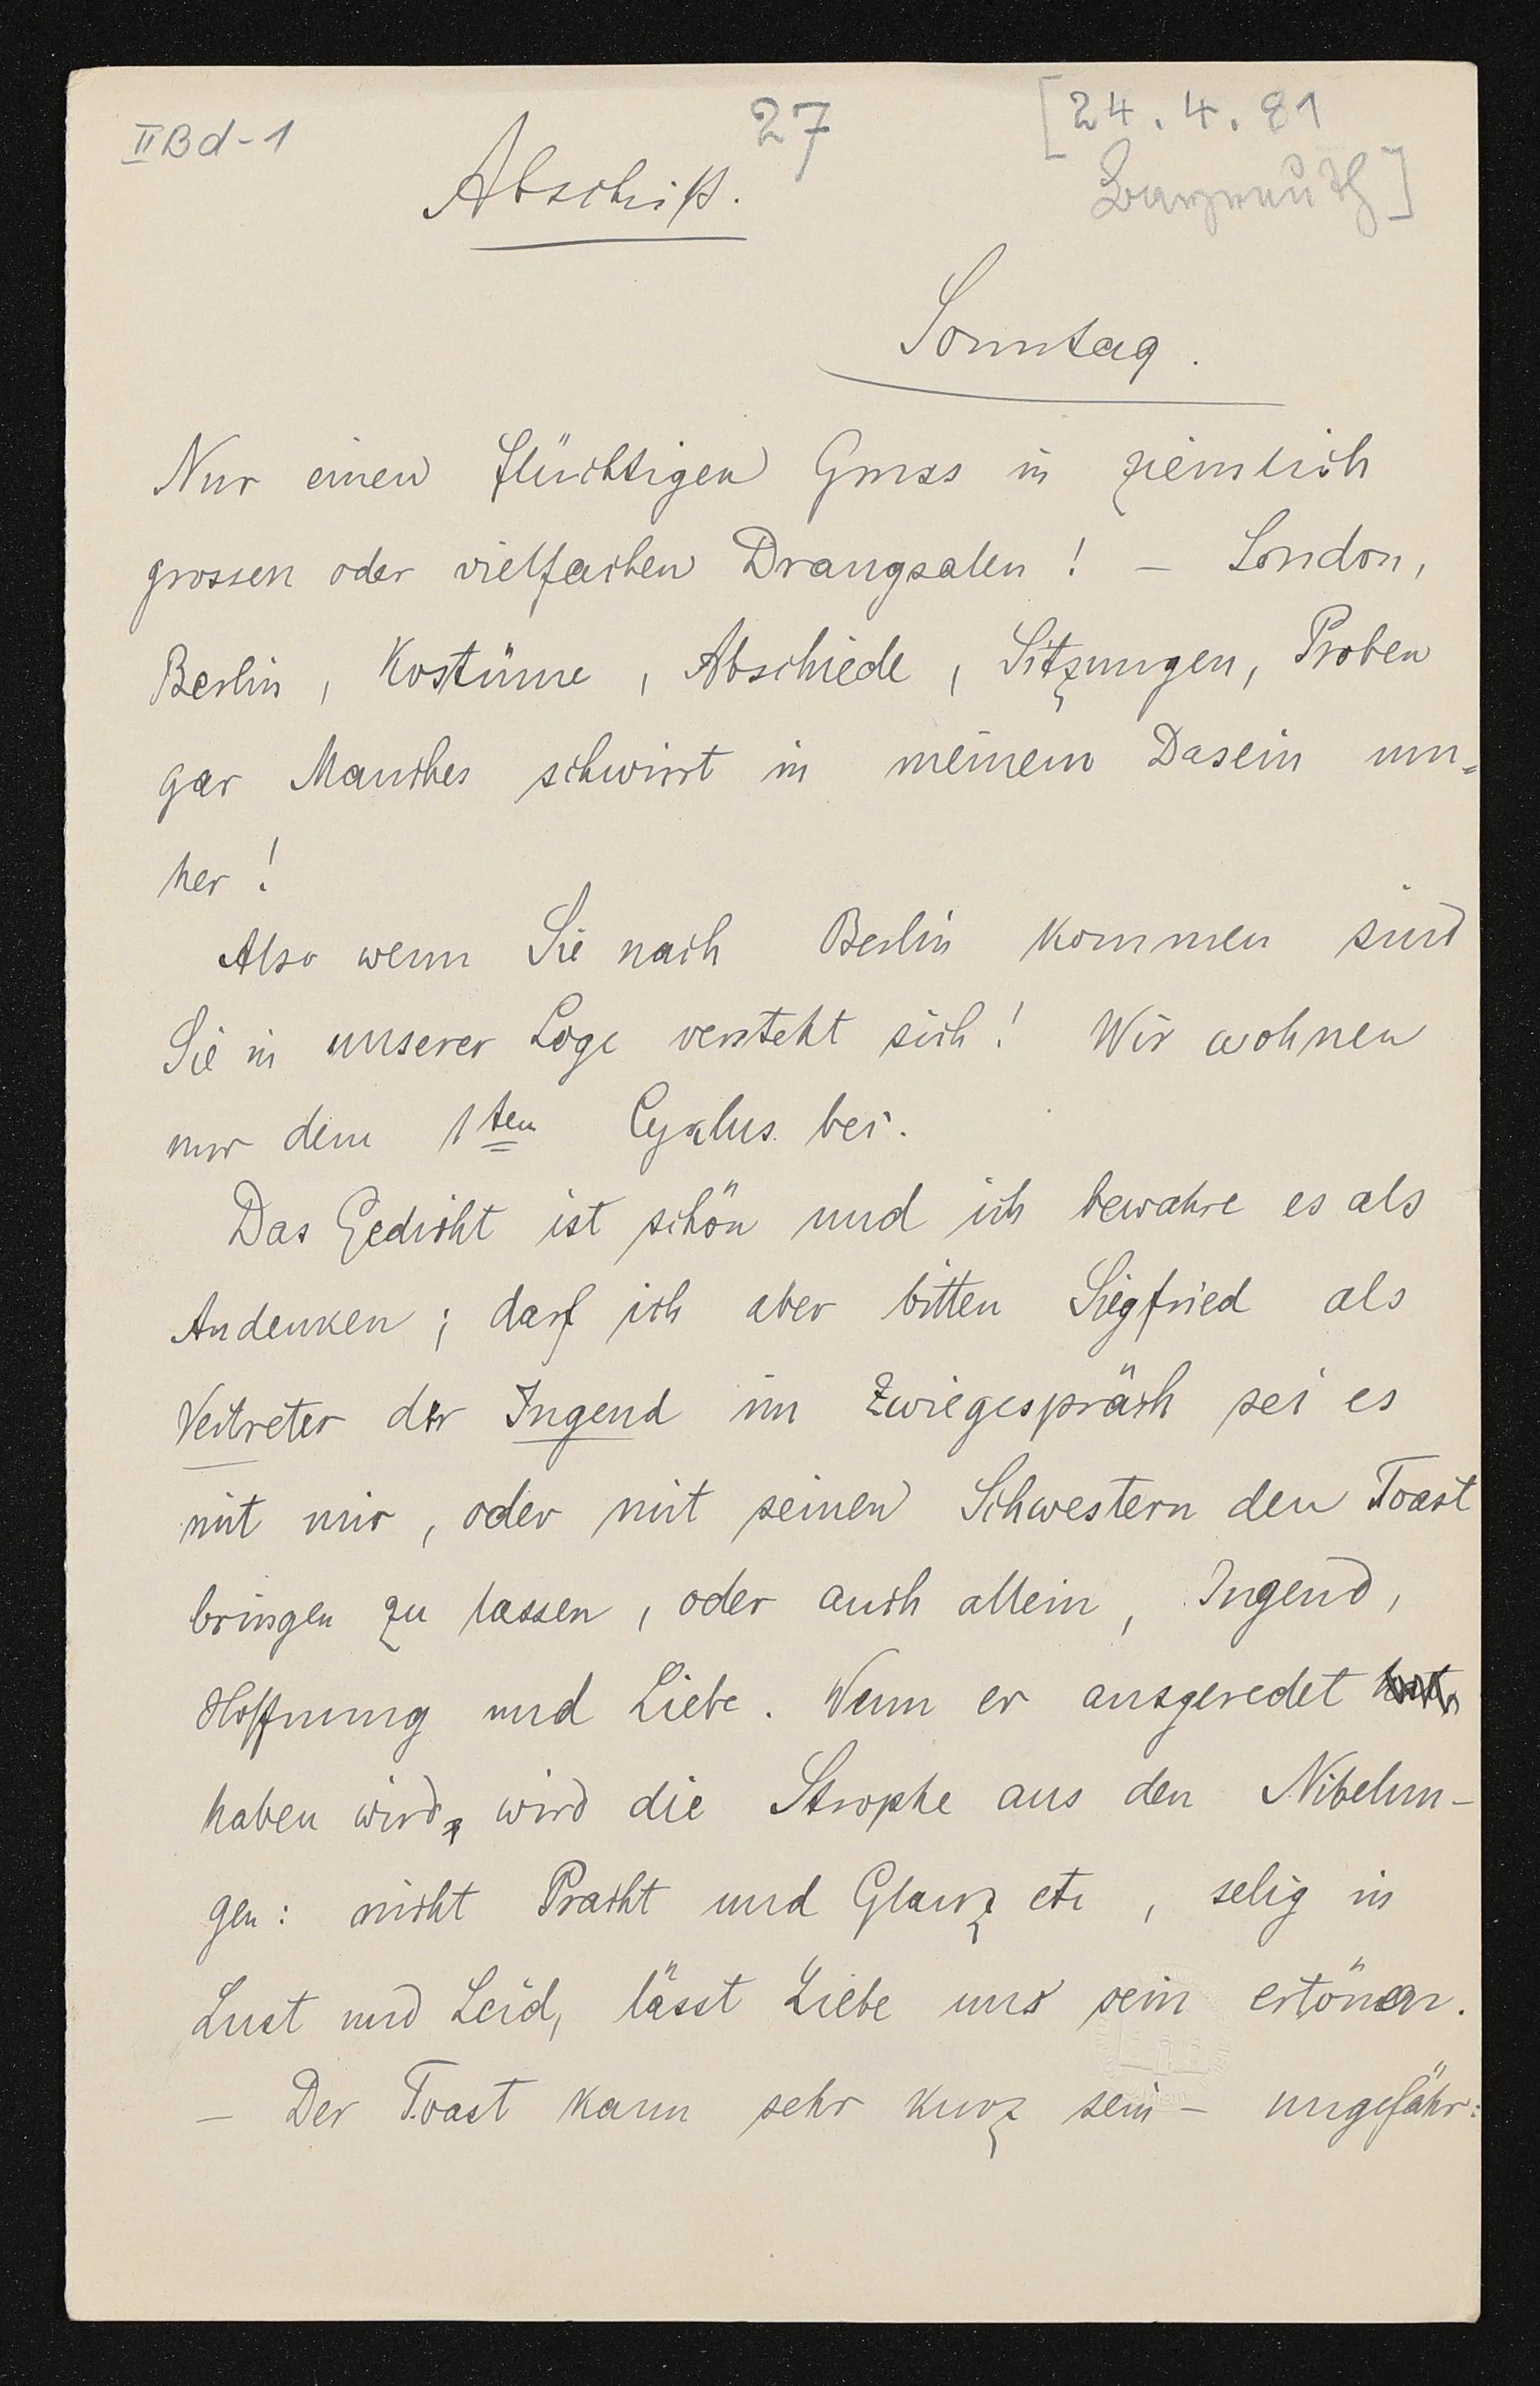 II Bd-1
27
[24.4.81
Bayreuth]
Abschrift.
Sonntag.
Nur einen flüchtigen Gruss in ziemlich
grossen oder vielfachen Drangsalen! – London,
Berlin, Kostüme, Abschiede, Sitzungen, Proben
gar Manches schwirrt in meinem Dasein um=
her!
Also wenn Sie nach Berlin kommen sind
Sie in unserer Loge versteht sich! Wir wohnen
nur dem 1ten Cyklus bei.
Das Gedicht ist schön und ich bewahre es als
Andenken; darf ich aber bitten Siegfried als
Vertreter der Jugend im Zwiegespräch sei es
mit mir, oder mit seinen Schwestern den Toast
bringen zu lassen, oder auch allein, Jugend,
Hoffnung und Liebe. Wenn er ausgeredet
haben wird, wird die Strophe aus den Nibelun-
gen: nicht Pracht und Glanz etc, selig in
Lust und Leid, lässt Liebe uns sein ertönen.
– Der Toast kann sehr kurz sein – ungefähr: